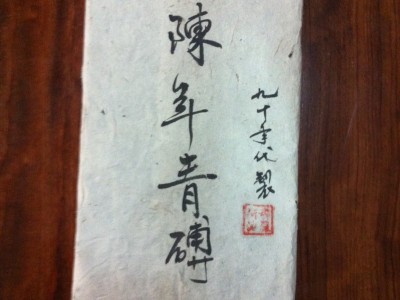 陳年青磚
九十年代製